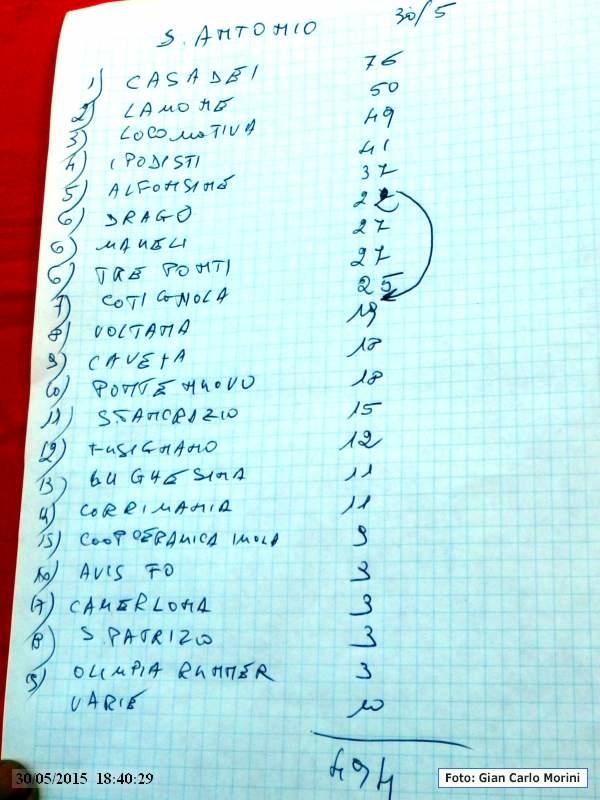 S. ANTONIO 30/5
1) CASADEI 76
2) LAMONE 50
3) LOCOMOTIVA 49
4) I PODISTI 41
5) ALFONSINE 37
6) DRAGO
6) MAMELI 27
6) TRE PONTI 27
7) COTIGNOLA 25
8) VOLTANA 19
9) CAVEJA 18
10) PONTE NUOVO 18
11) S.PANCRAZIO 15
12) FUSIGNANO 12
13) BUGHESINA 11
14) CORRIMANIA 11
15) COOP CERAMICA IMOLA 9
16) AVIS FO 3
17) CAMERLONA 3
18) S. PATRIZIO 3
19) OLIMPIA RUNNER 3
VARIE 10
494
30/05/2015 18:40:29
Foto: Gian Carlo Morini